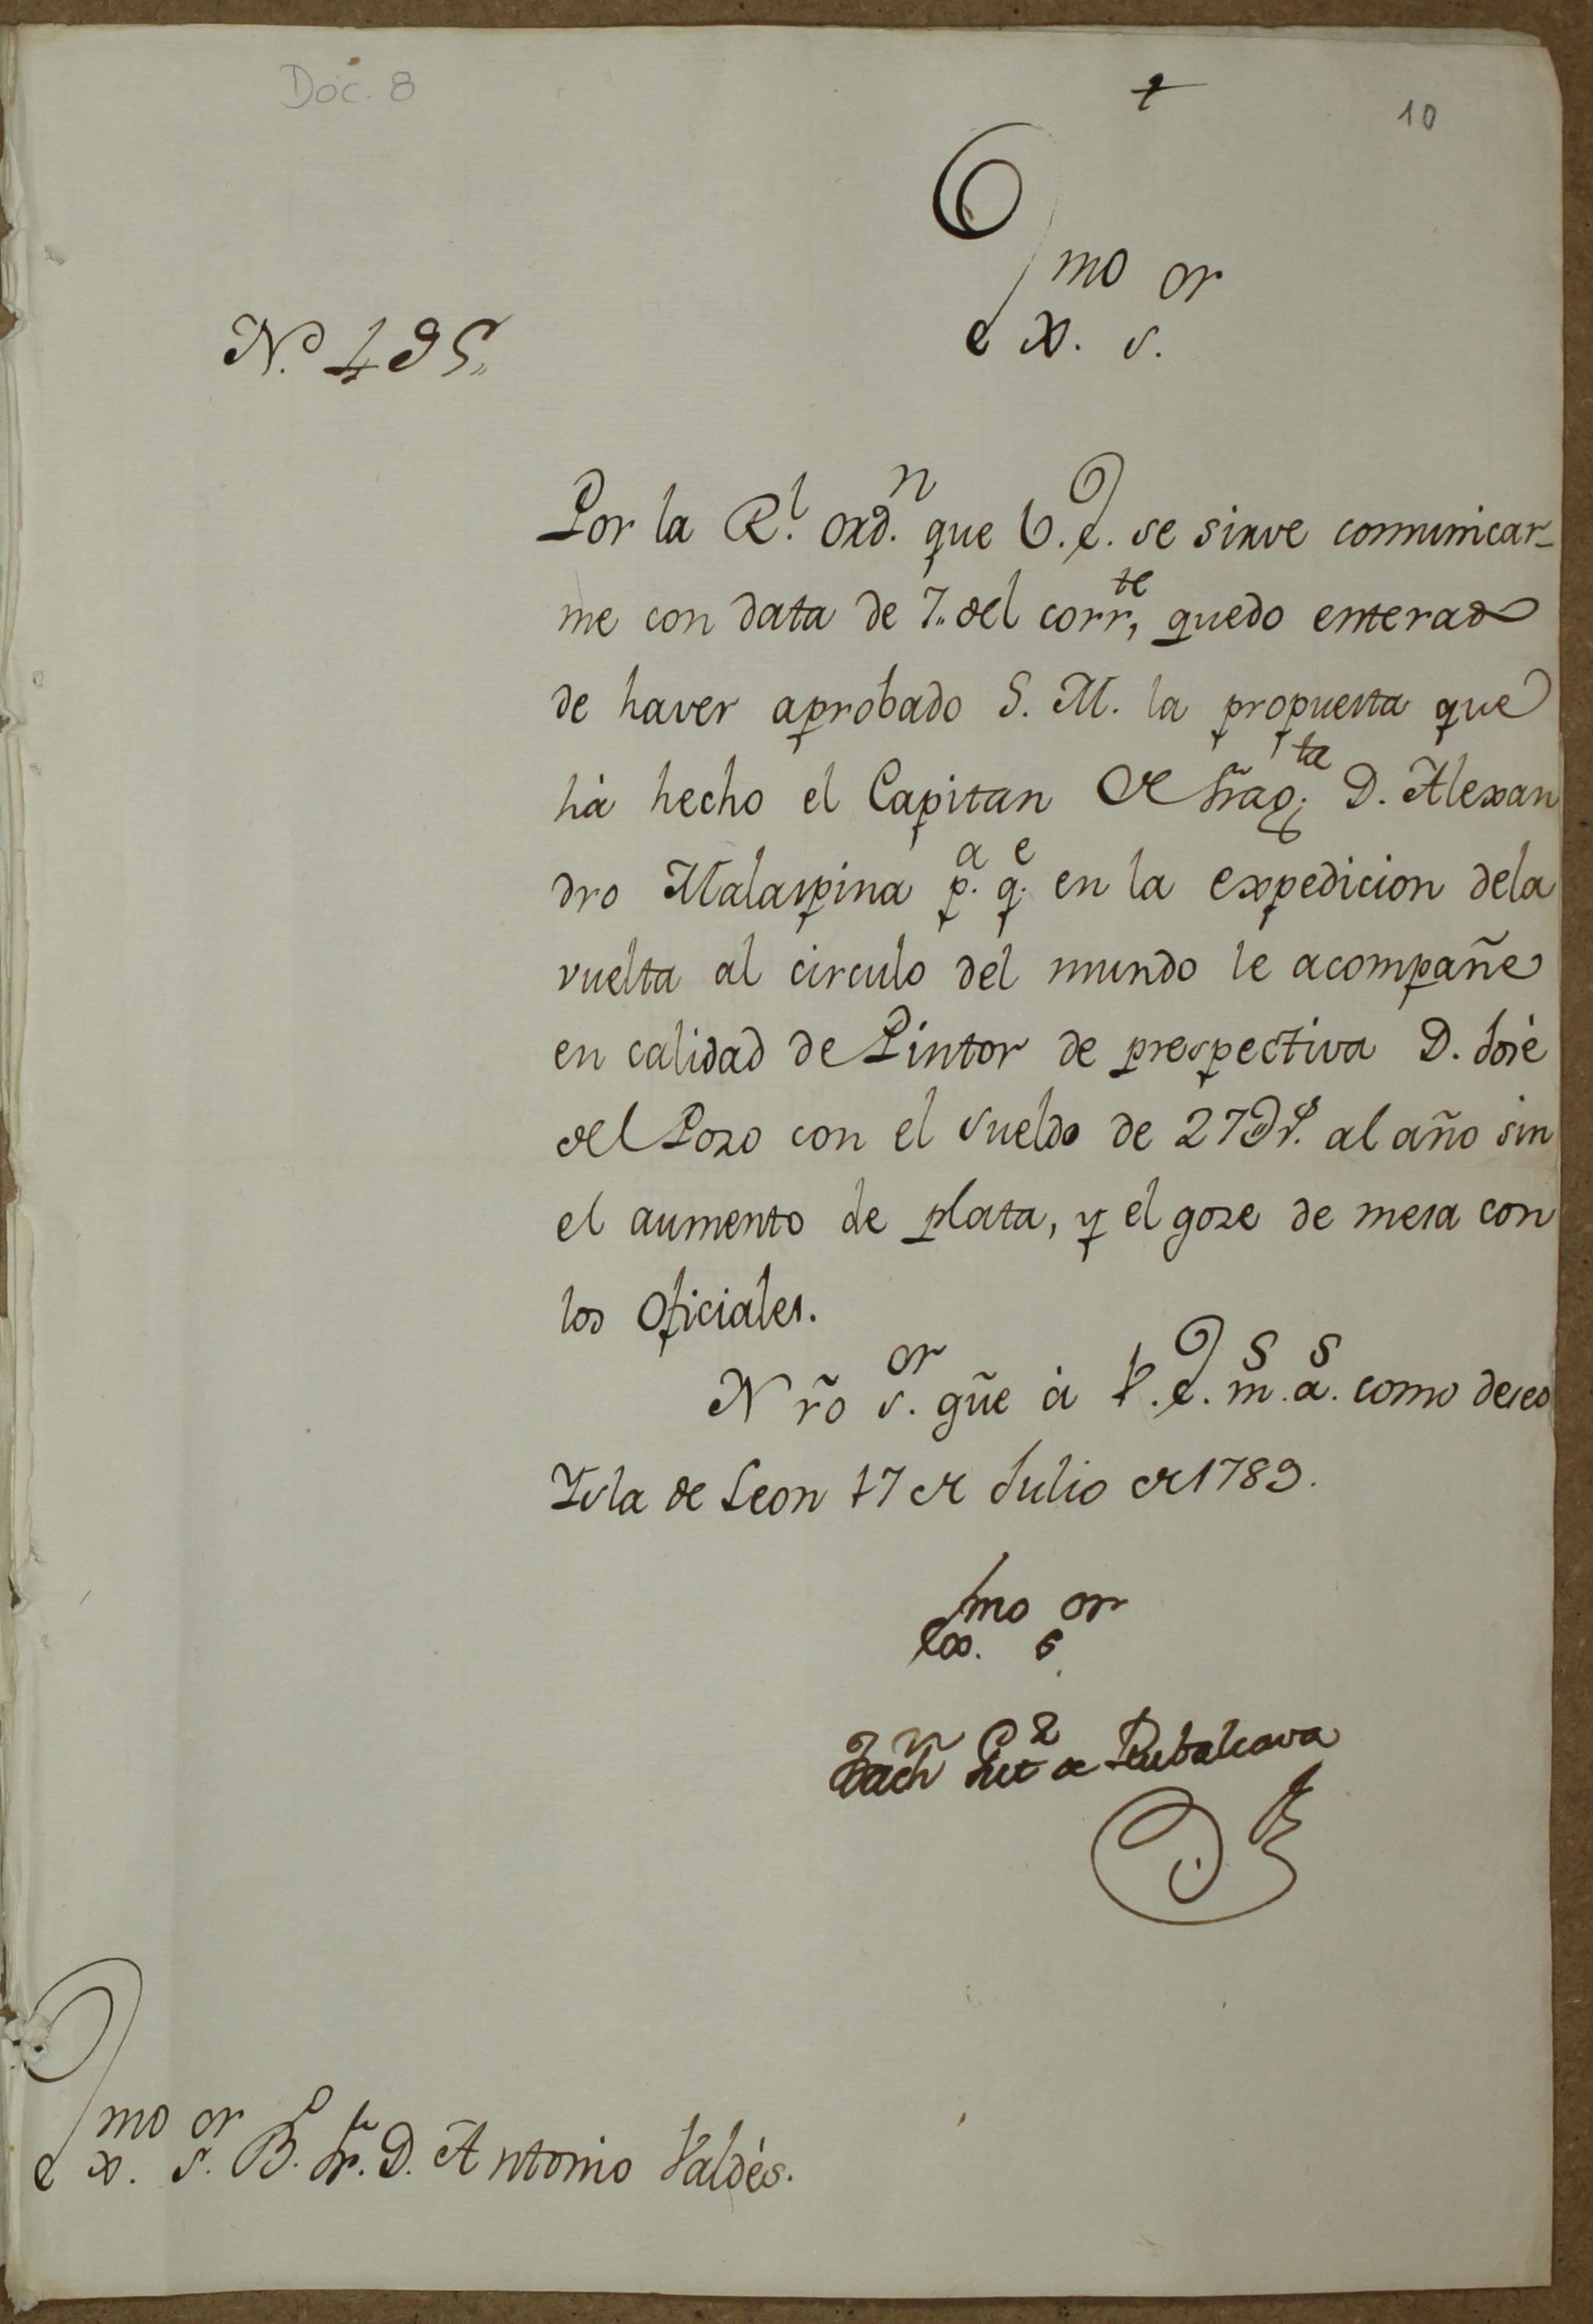 Doc. 8
10
Exmo. sor.
N.º 495.,
Por la Rl. ordn. que V.E. se sirve comunicar-
me con data de 7.. del corrte, quedo enterado
de haver aprobado S. M. la propuesta que
há hecho el Capitan de fragta. D. Alexan
dro Malaspina pa. qe. en la expedicion dela
vuelta al circulo del mundo le acompañe
en calidad de Pintor de prespectiva D. José
del Pozo con el sueldo de al año sin
el aumento de plata, y el goze de mesa con
los Oficiales.
Nrõ sor. gũe á V.E. ms. as. como deseo
Isla de Leon 17 de Julio de 1789.
Exmo. sor.
Rubalcava
Exmo. sor. Bo. Fr. D. Antonio Valdés.